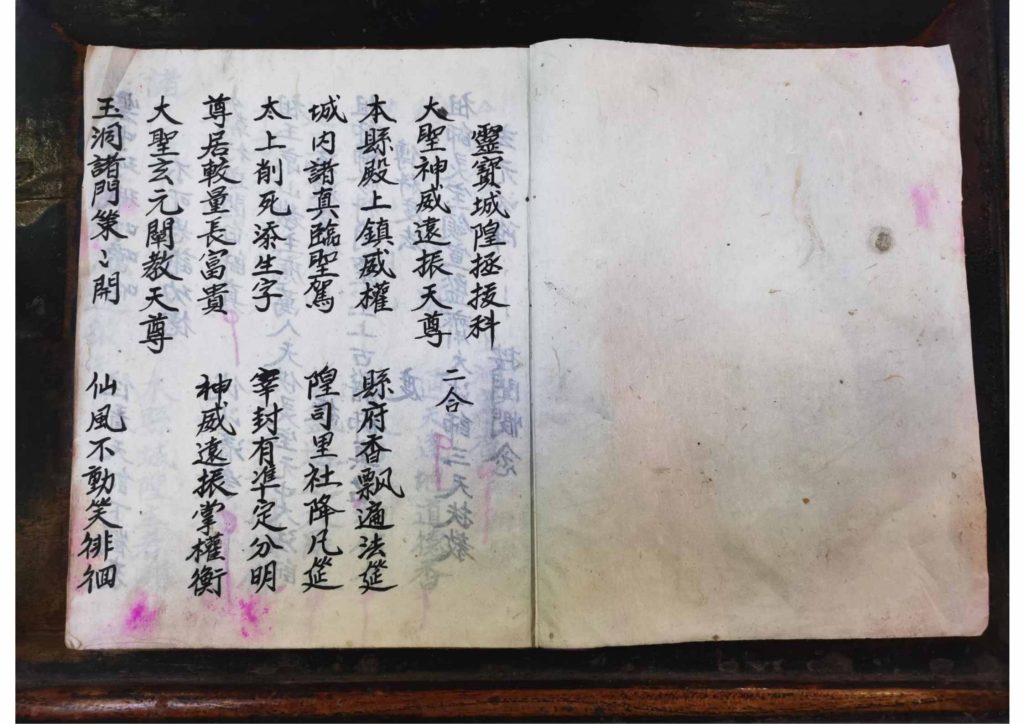 靈寶城隍拯拔科
大聖神威遠振天尊 二合
本縣殿上鎮威權 縣府香飄遍法筵
城內諸真臨聖駕 隍司里社降凡筵
太上削死添生字 宰封有準定分明
尊居較量長富貴 神威遠振掌權衡
大聖玄元闡教天尊
玉洞諸門策〻開 仙風不動笑徘徊